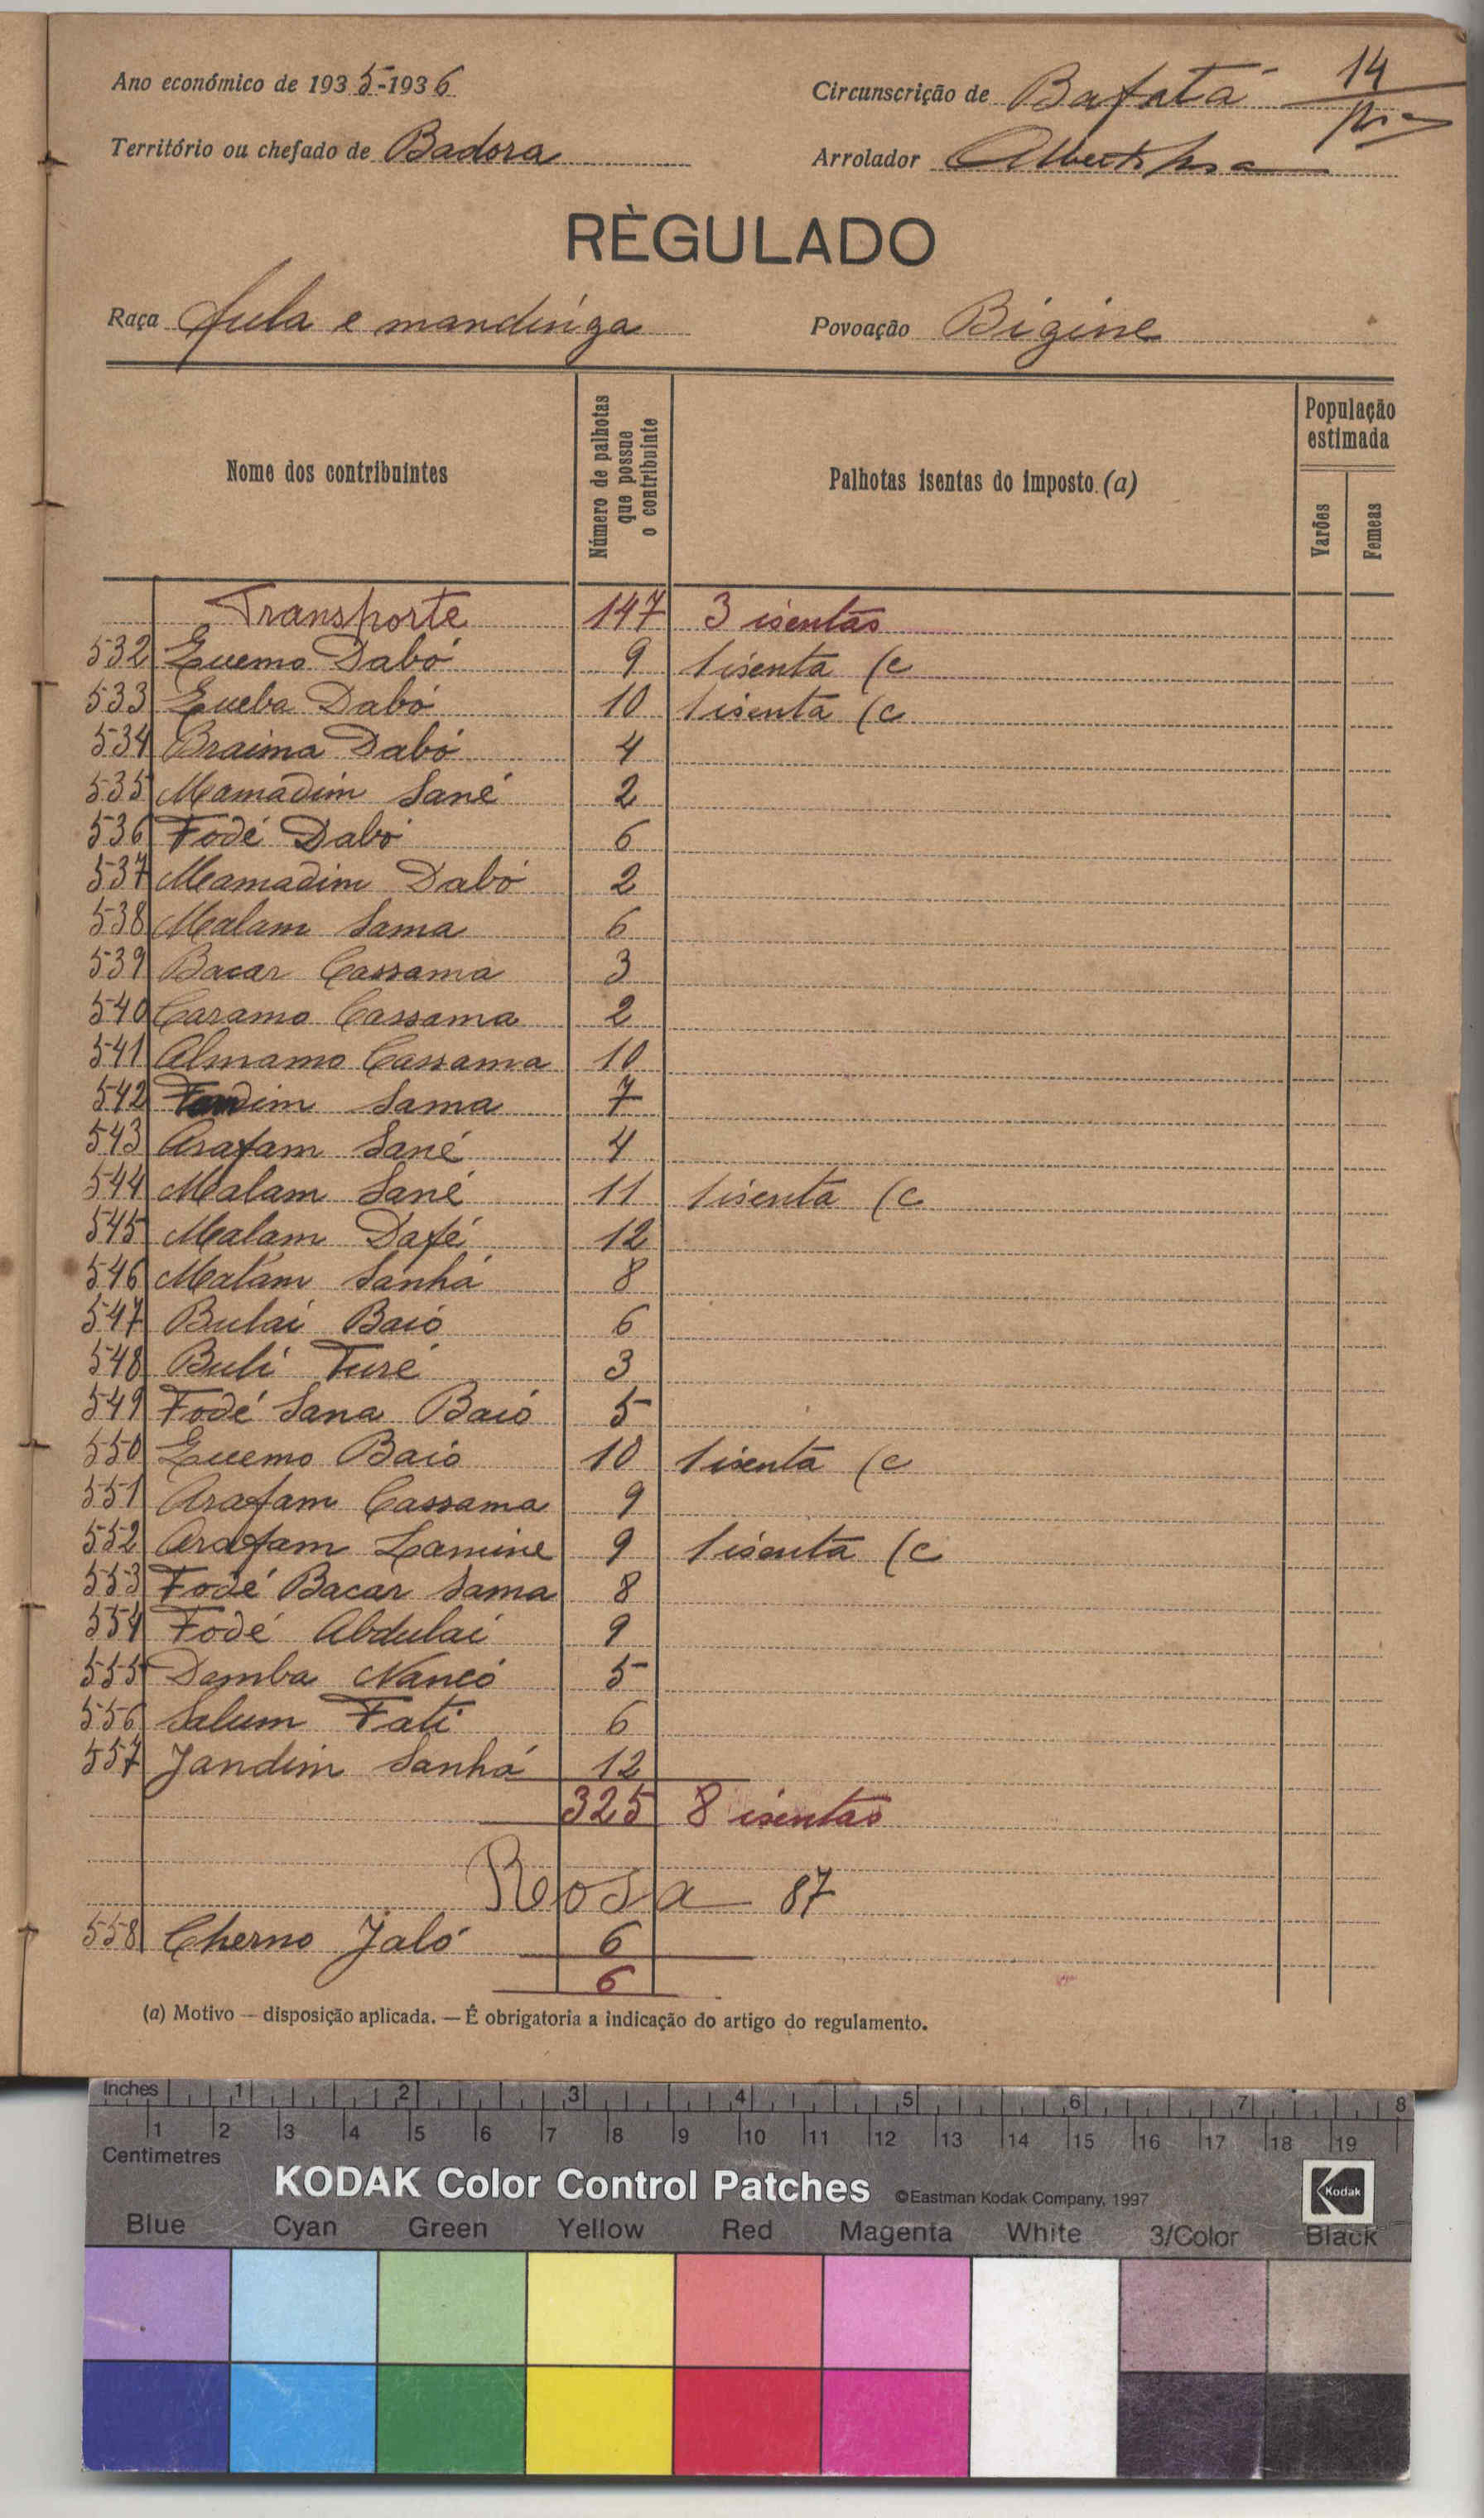 14
Ano económico de 1935-1936 Circunscrição de Bafatá
Território ou chefado de Badora Arrolador
RÈGULADO
Raça fula e mandinga Povoação Bigine
Nome dos contribuintes Número de palhotas que possue o contribuinte Palhotas isentas do imposto (a) População estimada Varões Femeas
Transporte 147 3 isentas
532 Quemo Dabó 9 1 isenta (c
533 Queba Dabó 10 1 isenta (c
534 Braima Dabó 4
535 Mamadim Sané 2
536 Fodé Dabó 6
537 Mamadim Dabó 2
538 Malam Sama 6
539 Bacar Cassama 3
540 Caramo Cassama 2
541 Almamo Cassama 10
542 Sama 7
543 Arafam Sané 4
544 Malam Sané 11 1 isenta (c
545 Malam Dafé 12
546 Malam Sanhá 8
547 Bulai Baió 6
548 Buli Turé 3
549 Fodé Sana Baió 5
550 Quemo Baió 10 1 isenta (c
551 Arafam Cassama 9
552 Arafam Lamine 9 1 isenta (c
553 Fodé Bacar Sama 8
554 Fodé Abdulai 9
555 Demba Nancó 5
556 Salum Fati 6
557 Jandim Sanhá 12
325 8 isentas
Rosa 87
558 Cherno Jaló 6
6
(a) Motivo — disposição aplicada. — É obrigatoria a indicação do artigo do regulamento.
Inches 1 2 3 4 5 6 7 8
1 2 3 4 5 6 7 8 9 10 11 12 13 14 15 16 17 18 19
Centimetres
KODAK Color Control Patches ©Eastman Kodak Company, 1997 Kodak
Blue Cyan Green Yellow Red Magenta White 3/Color Black